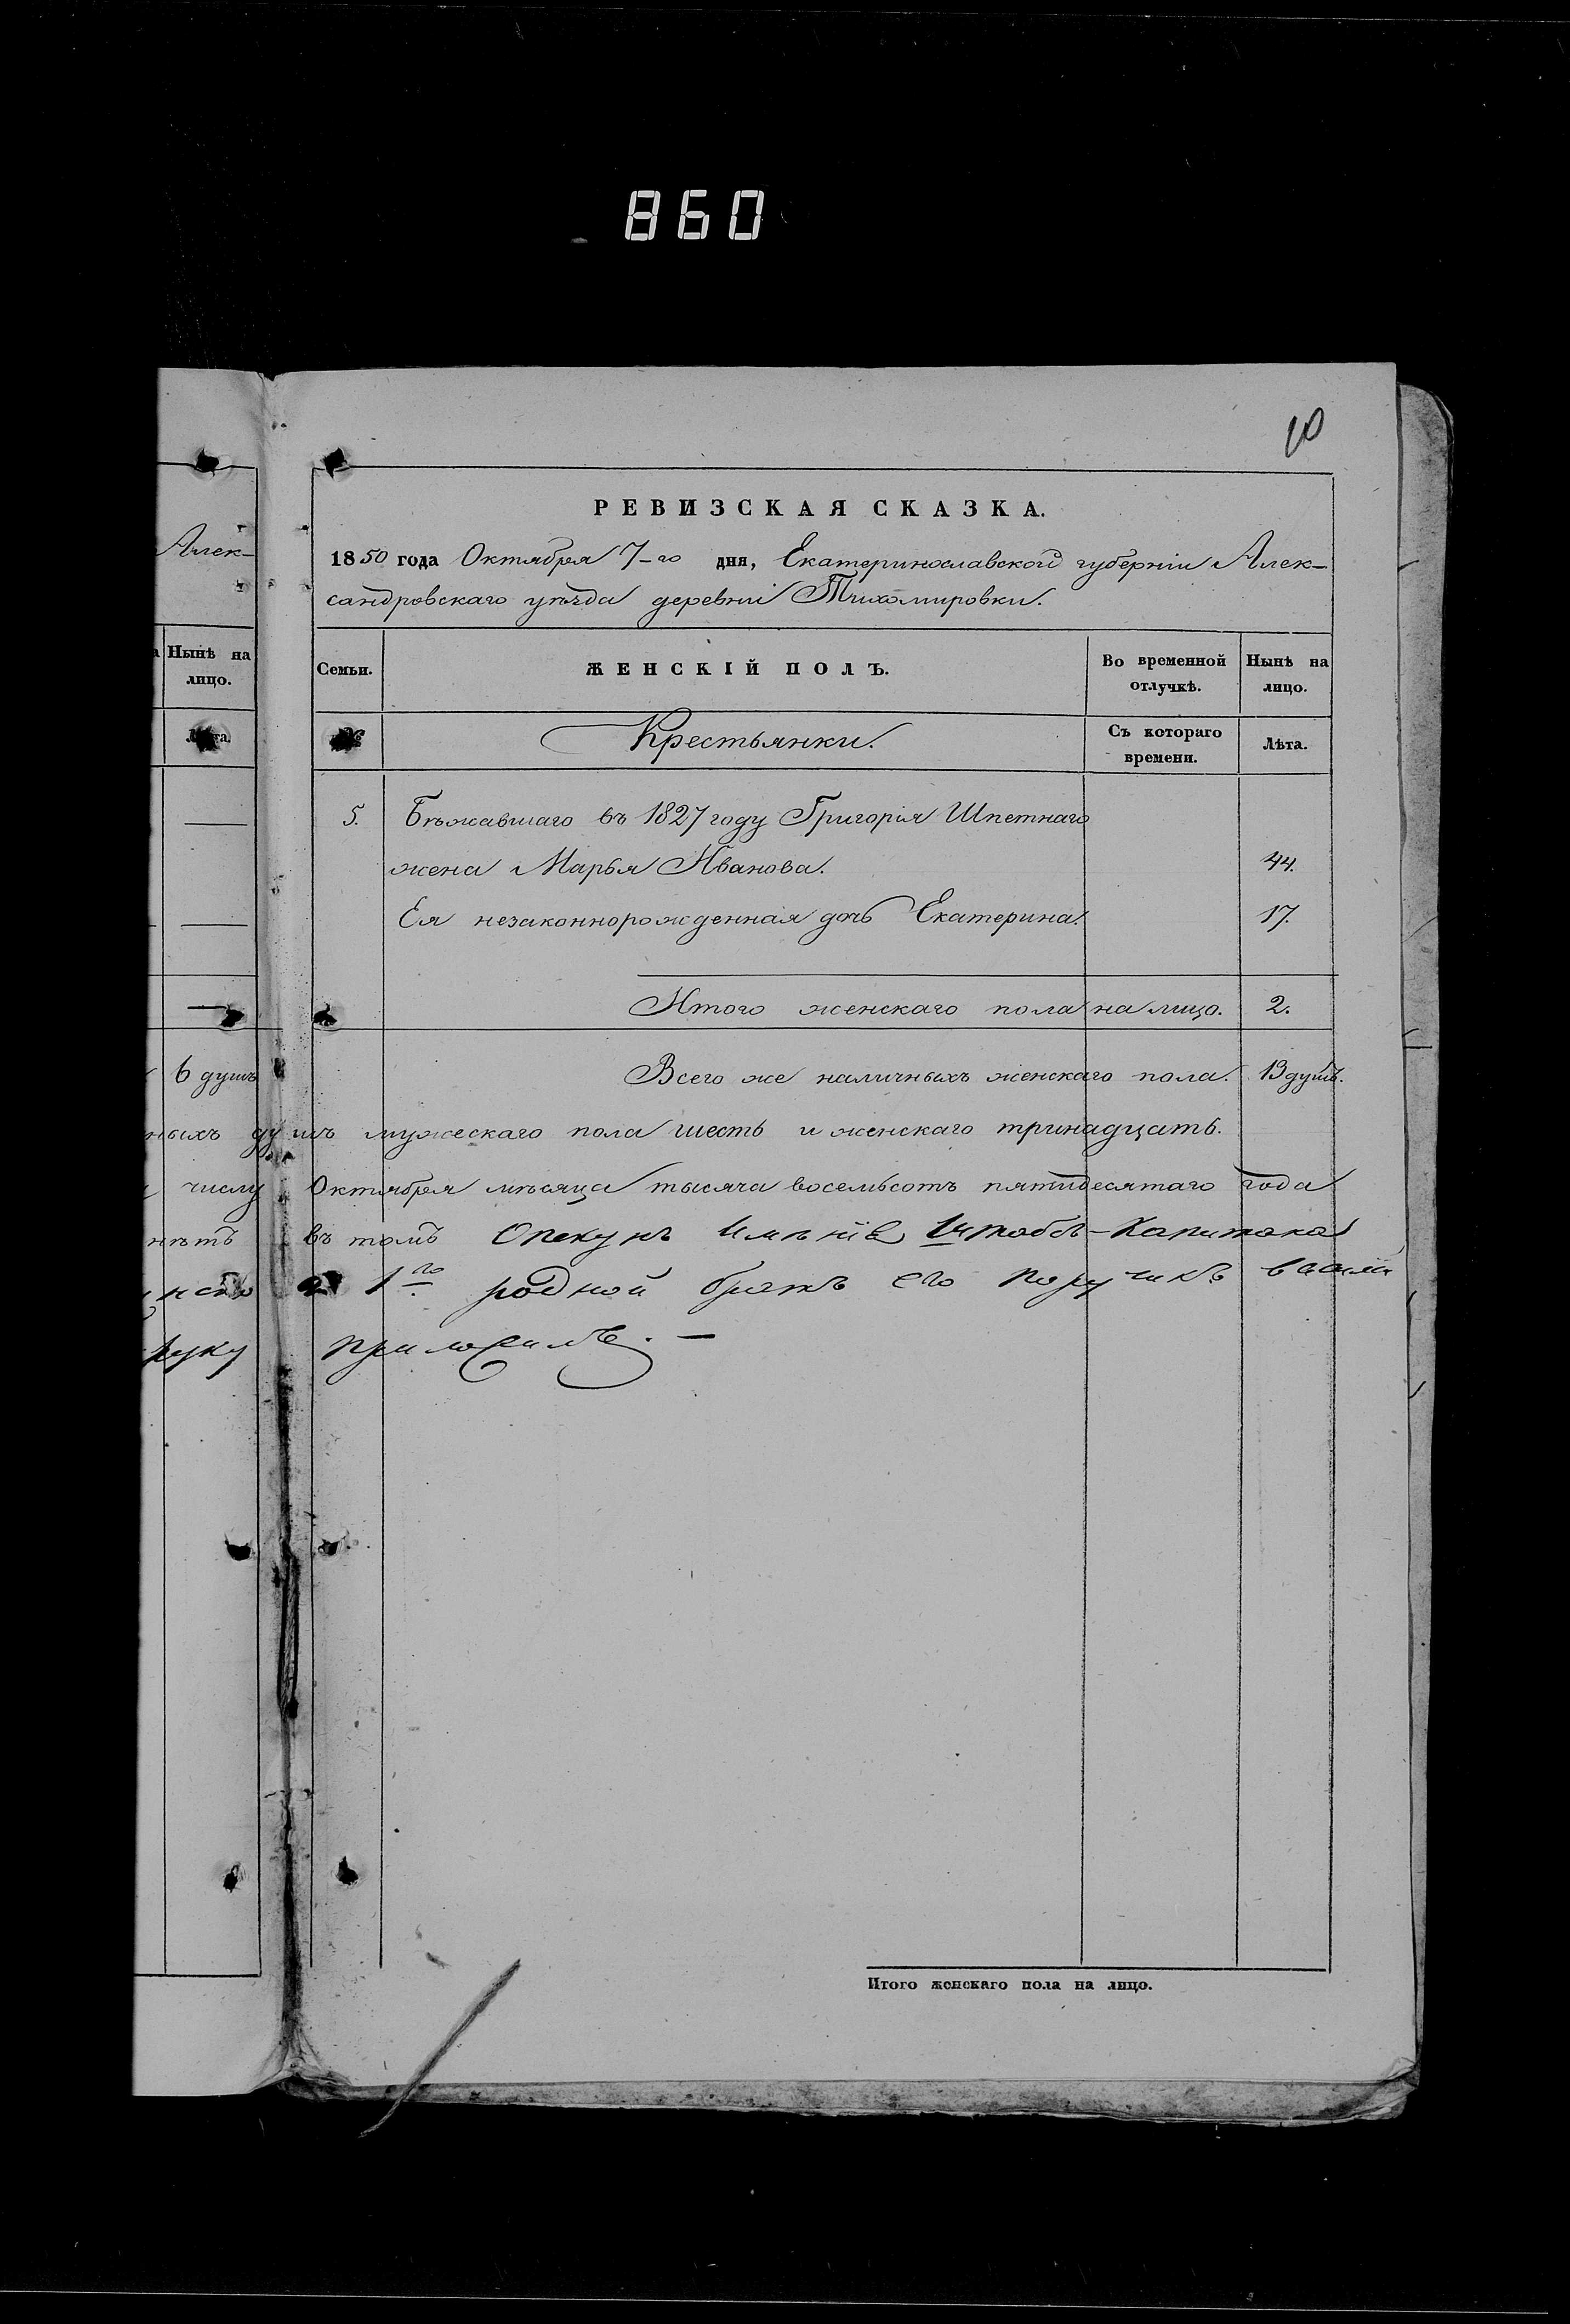 860
10
РЕВИЗСКАЯ СКАЗКА.
1850 года Октября 7-го дня, Екатеринославской губерніи Алек-
сандровскаго уѣзда деревни Тихомировки.
Семьи.
ЖЕНСКІЙ ПОЛЪ.
Во временной
отлучкѣ.
Нынѣ на
лицо.
Крестьянки.
Съ котораго
времени.
Лѣта.
5. Бѣжавшаго въ 1827 году Григорія Шпетнаго
жена Марья Иванова. 44.
Ея незаконнорожденная дочь Екатерина. 17.
Итого женскаго пола на лицо. 2.
Всего же наличныхъ женскаго пола. 13 душъ.
ныхъ душъ мужескаго пола шесть и женскаго тринадцать.
числу Октября мѣсяца тысяча восемьсотъ пятидесятаго года
въ томъ Опекунъ Имѣнія Штабсъ-Капитана
1го родной братъ его Поручикъ
руку приложилъ. —
Алек-
Нынѣ на
лицо.
6 душъ
Итого женскаго пола на лицо.